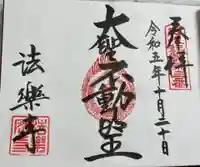 奉拝
令和五年十月二十日
大聖不動堂
法樂寺